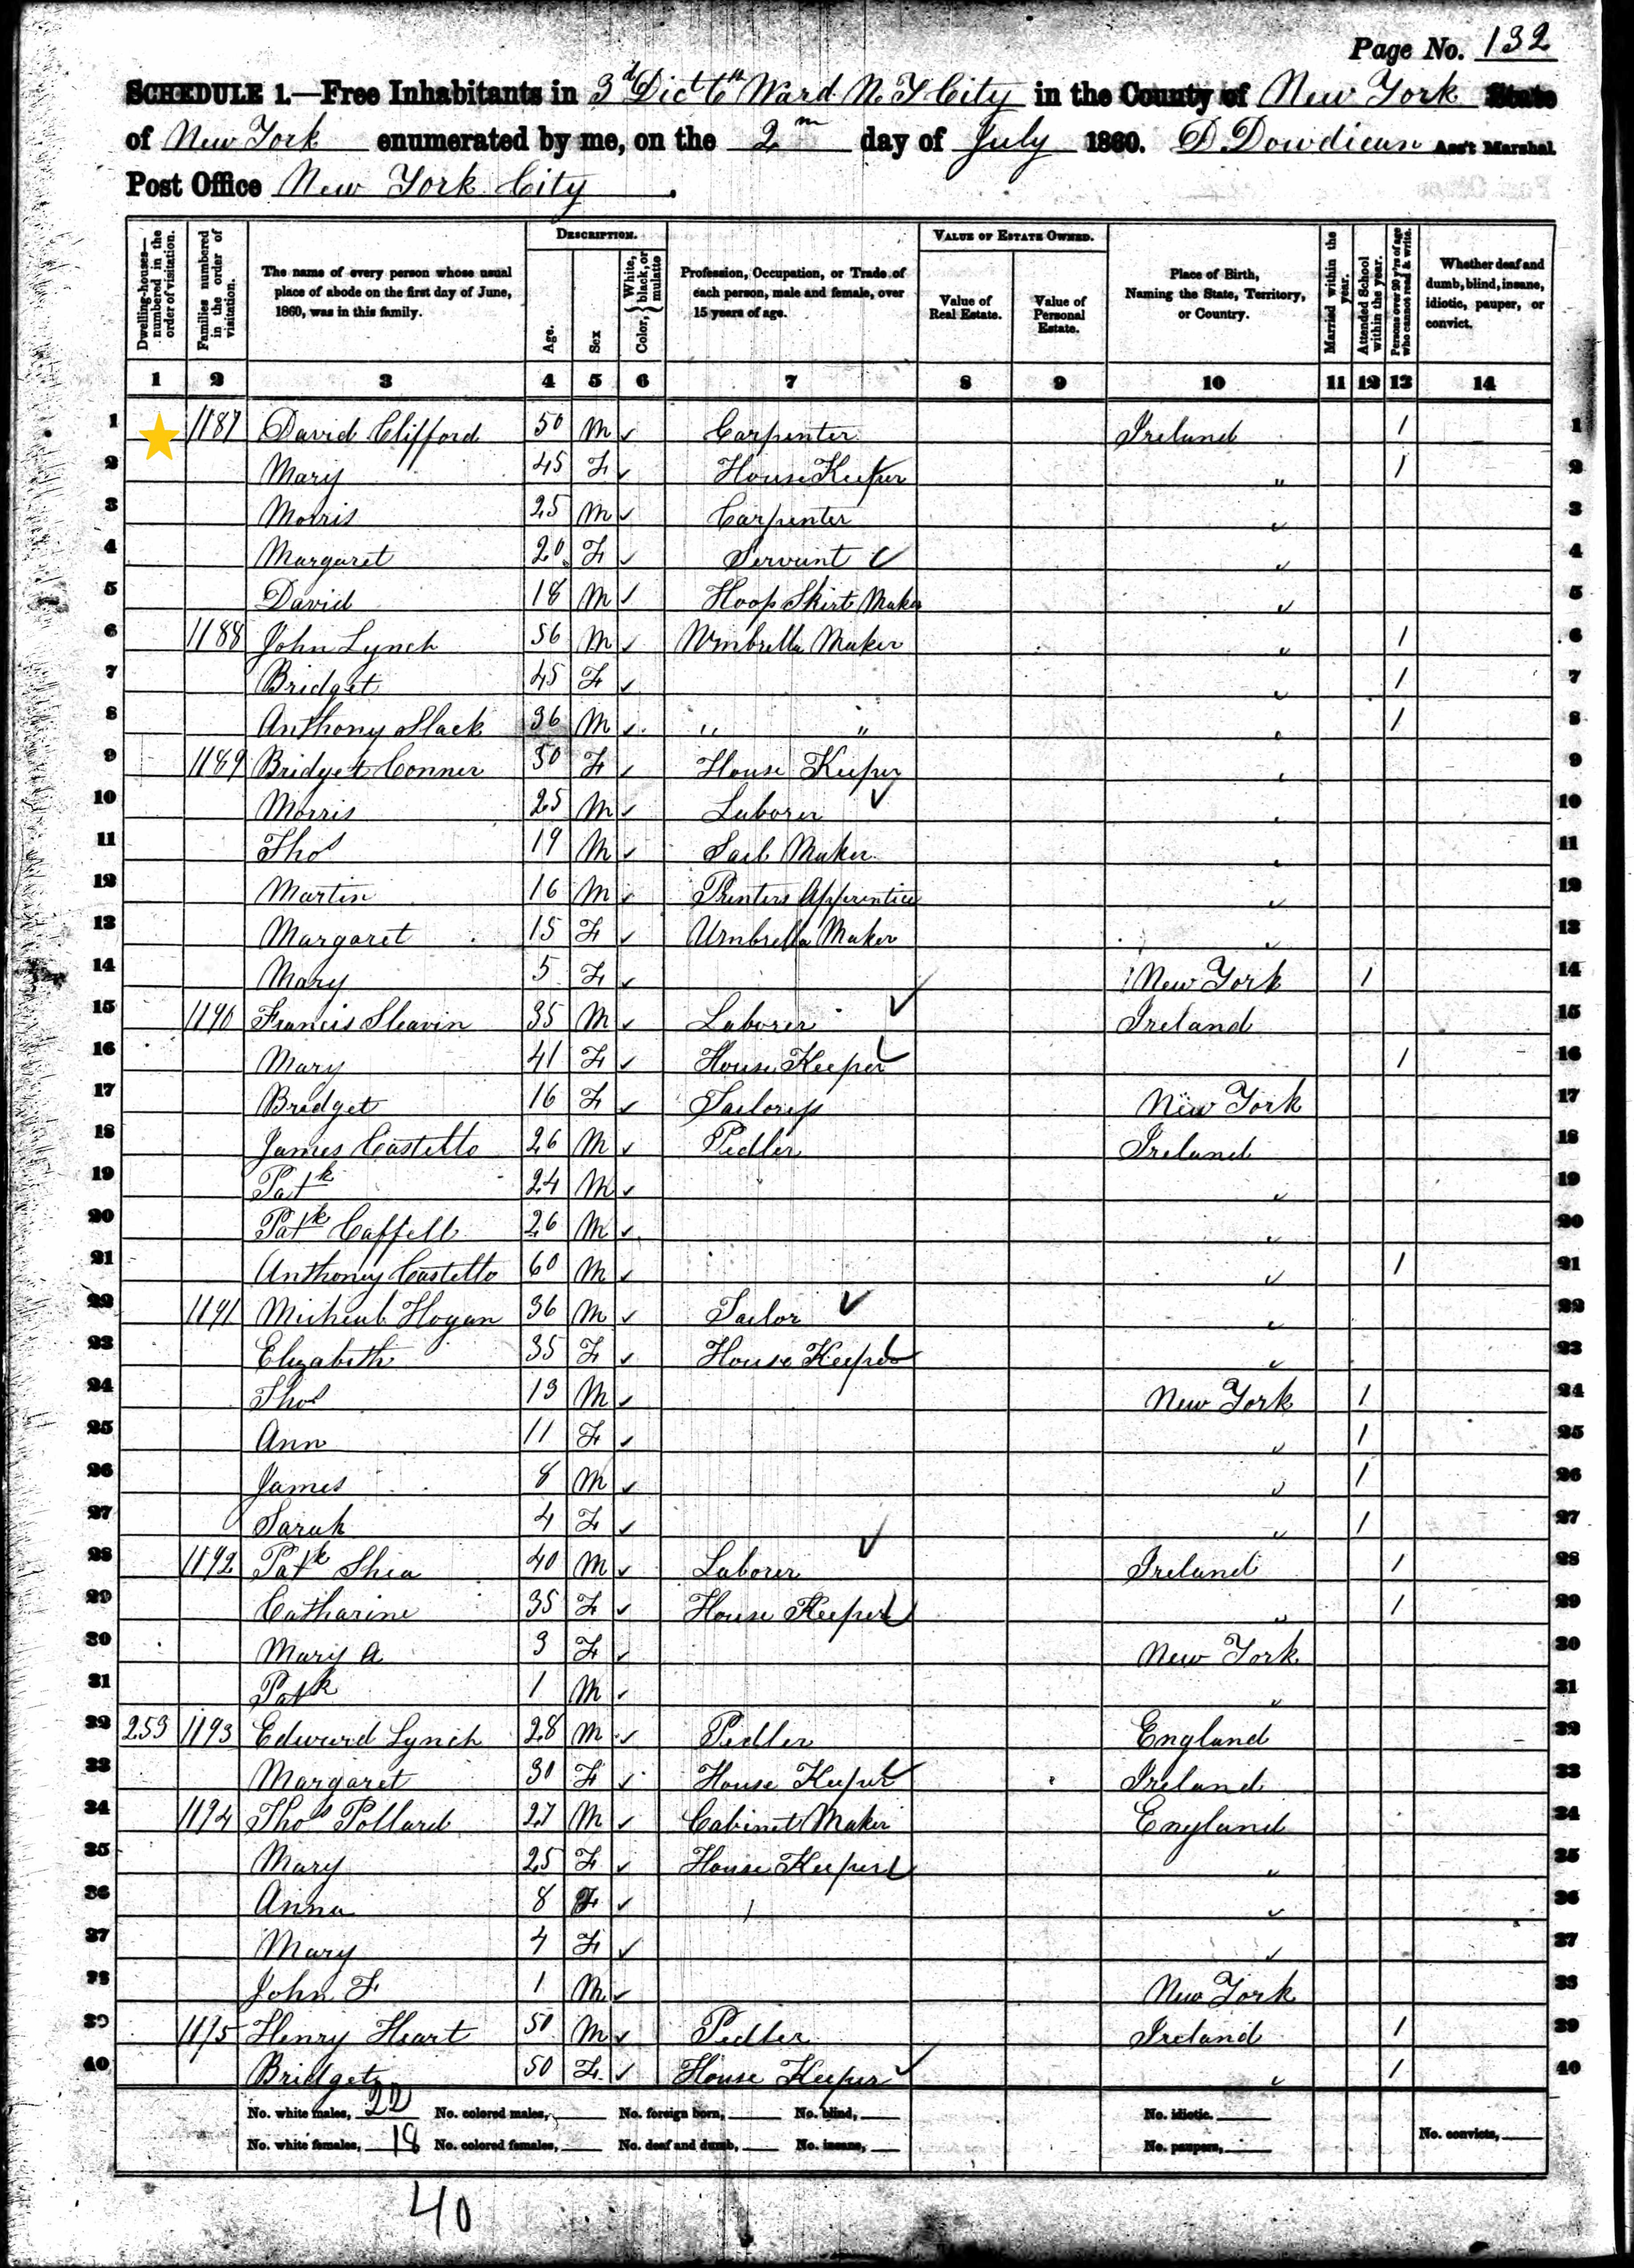 Page No. 132
SCHEDULE 1.—Free Inhabitants in 3d Dict 6th Ward N.Y City in the County of New York State
of New York enumerated by me, on the 2nd day of July 1860. D Dowdican Ass't Marshal
Post Office New York City.
Dwelling-houses—numbered in the order of visitation. Families numbered in the order of visitation. The name of every person whose usual place of abode on the first day of June, 1860, was in this family. DESCRIPTION. Age. Sex Color, White, black, or mulatto Profession, Occupation, or Trade of each person, male and female, over 15 years of age. VALUE OF ESTATE OWNED. Value of Real Estate. Value of Personal Estate. Place of Birth, Naming the State, Territory, or Country. Married within the year. Attended School within the year. Persons over 20 y'rs of age who cannot read & write. Whether deaf and dumb, blind, insane, idiotic, pauper, or convict.
1 2 3 4 5 6 7 8 9 10 11 12 13 14
1 1187 David Clifford 50 M ✓ Carpenter Ireland 1 1
2 Mary 45 F ✓ House Keeper " 1 2
3 Morris 25 M ✓ Carpenter " 3
4 Margaret 20 F ✓ Servant ✓ " 4
5 David 18 M ✓ Hoop Skirt Maker " 5
6 1188 John Lynch 56 M ✓ Umbrella Maker " 1 6
7 Bridget 45 F ✓ " 1 7
8 Anthony Slack 36 M ✓ " " " 1 8
9 1189 Bridget Conner 50 F ✓ House Keeper " 9
10 Morris 25 M ✓ Laborer ✓ " 10
11 Thos 19 M ✓ Sail Maker " 11
12 Martin 16 M ✓ Printers Apprentice " 12
13 Margaret 15 F ✓ Umbrella Maker " 13
14 Mary 5 F ✓ New York 1 14
15 1190 Francis Slavin 35 M ✓ Laborer ✓ Ireland 15
16 Mary 41 F ✓ House Keeper ✓ 1 16
17 Bridget 16 F ✓ Tailoress New York 17
18 James Costello 26 M ✓ Pedler Ireland 18
19 Patk 24 M ✓ " 19
20 Patk Caffell 26 M ✓ " 20
21 Anthony Costello 60 M ✓ " 1 21
22 1191 Micheal Hogan 36 M ✓ Tailor ✓ " 22
23 Elizabeth 35 F ✓ House Keeper ✓ " 23
24 Thos 13 M ✓ New York 1 24
25 Ann 11 F ✓ " 1 25
26 James 8 M ✓ " 1 26
27 Sarah 4 F ✓ " 1 27
28 1192 Patk Shea 40 M ✓ Laborer ✓ Ireland 1 28
29 Catharine 35 F ✓ House Keeper ✓ " 1 29
30 Mary A 3 F ✓ New York 30
31 Patk 1 M ✓ " 31
32 253 1193 Edward Lynch 28 M ✓ Pedler England 32
33 Margaret 30 F ✓ House Keeper ✓ Ireland 33
34 1194 Thos Pollard 27 M ✓ Cabinet Maker England 34
35 Mary 25 F ✓ House Keeper ✓ " 35
36 Anna 8 F ✓ " 36
37 Mary 4 F ✓ " 37
38 John F 1 M ✓ New York 38
39 1195 Henry Heart 50 M ✓ Pedler Ireland 1 39
40 Bridget 50 F ✓ House Keeper ✓ " 1 40
No. white males, 22 No. colored males, No. foreign born, No. blind, No. idiotic.
No. white females, 18 No. colored females, No. deaf and dumb, No. insane, No. paupers, No. convicts,
40